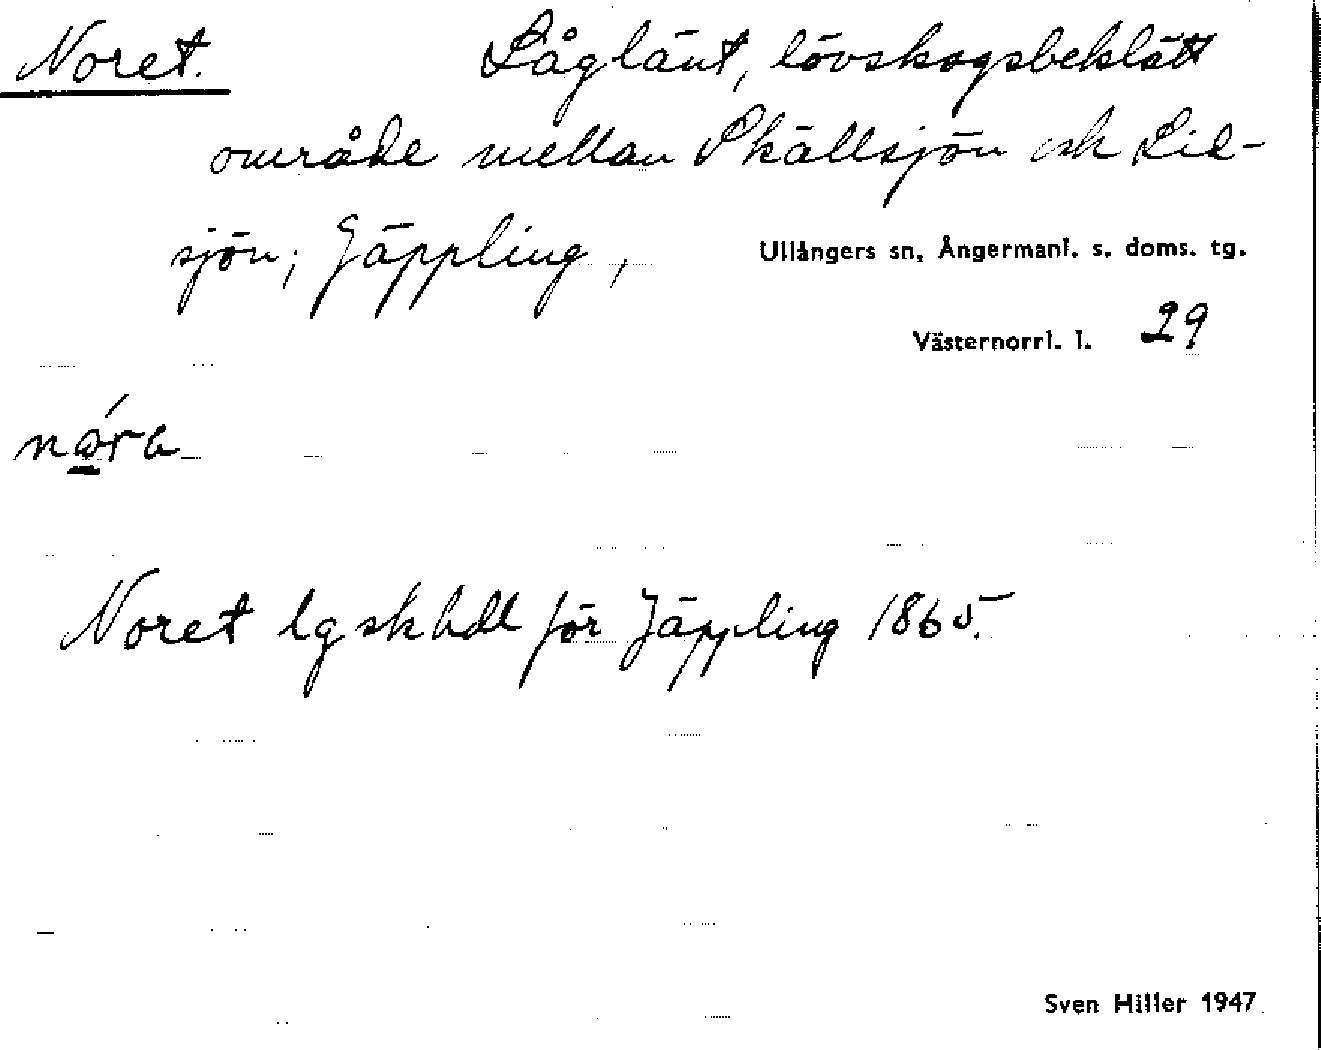 Noret. Låglänt, lövskogsbeklätt
område mellan Skällsjön och Lil-
sjön; Jäppling,
Ullångers sn, Ångermanl. s. doms. tg.
Västernorrl. l. 29
Noret lgskhdl för Jäppling 1865.
Sven Hiller 1947